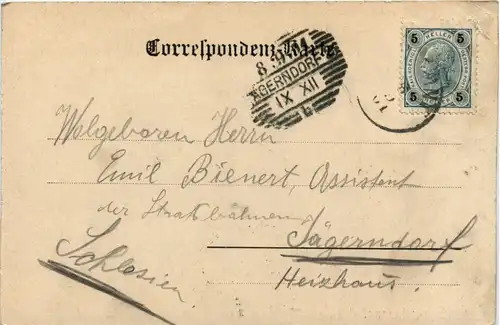 Correspondenz-Karte
5 HELLER 5
5 5
8.9.01
JÄGERNDORF
IX XII
b
Wolgeboren Herrn
Emil Bienert, Assistent
der Straßbahnen
Jägerndorf
Heizhaus.
Schlesien